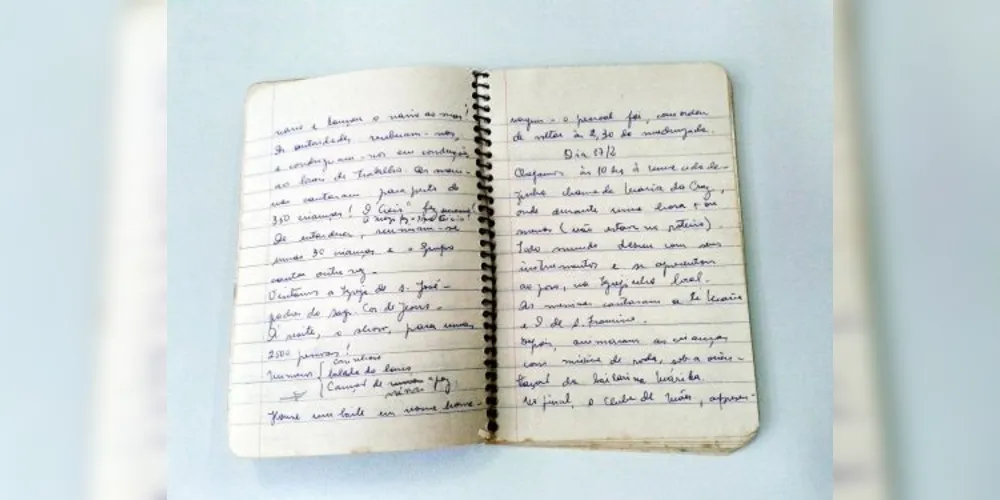 navio e lançar o navio ao mar!
As autoridades, receberam-nos,
e conduziram-nos em condução
ao local de trabalho. As meni-
nas cantaram para perto de
350 crianças! O
Ao entardecer, reuniram-se
umas 30 crianças e o grupo
cantou outra vez.
Visitamos a Igreja de S. José-
padres do Sag. Cor. de Jesus.
À noite, o show, para umas
2500 pessoas!
Carinhoso
balada do louco
Canção de "paz"
Houve um baile em nossa home-
nagem - o pessoal foi, com ordem
de voltar às 2,30 da madrugada.
Dia 17/2
Chegamos às 10 hrs à uma cidade-
zinha chamada Maria da Cruz,
onde durante uma hora + ou
menos (não estava no roteiro).
Todo mundo desceu com seus
instrumentos e se apresentou
ao povo, na Igrejinha local.
As meninas cantaram a
e O de S. Francisco.
Depois, animaram as crianças
com música de roda, sob a orien-
tação da bailarina Marika.
No final, o Clube de Mães, apresen-